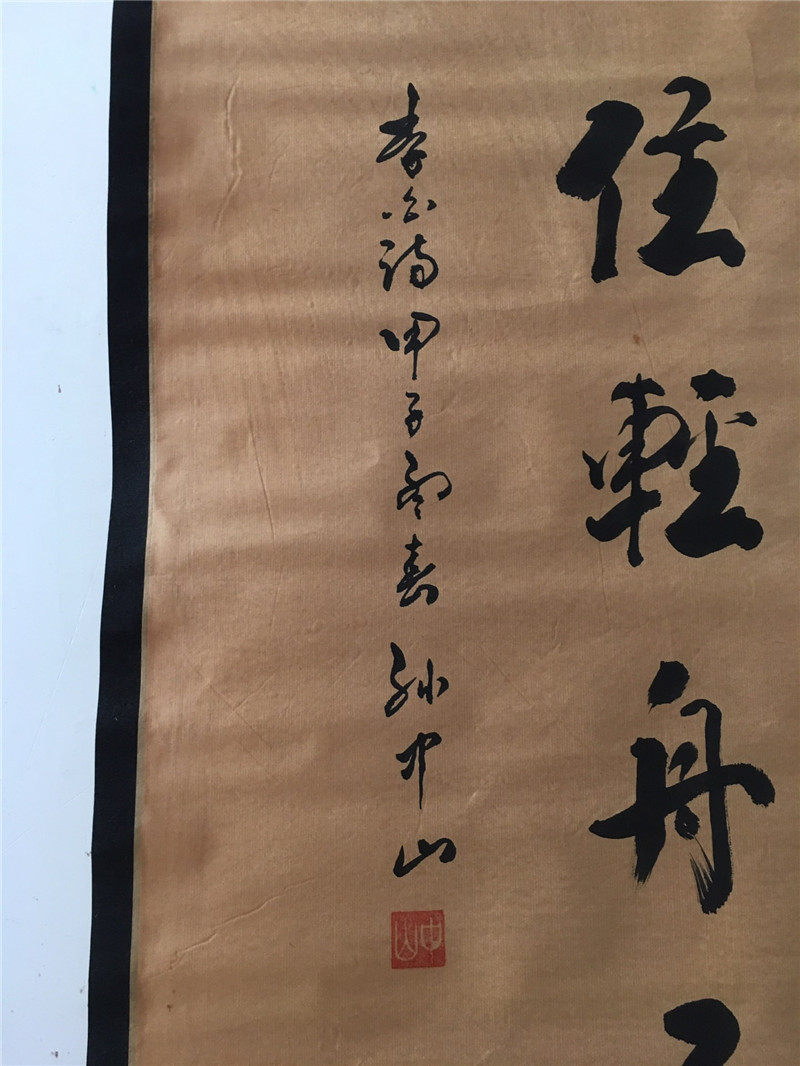 住輕舟
李白詩甲子春
孫中山
中山